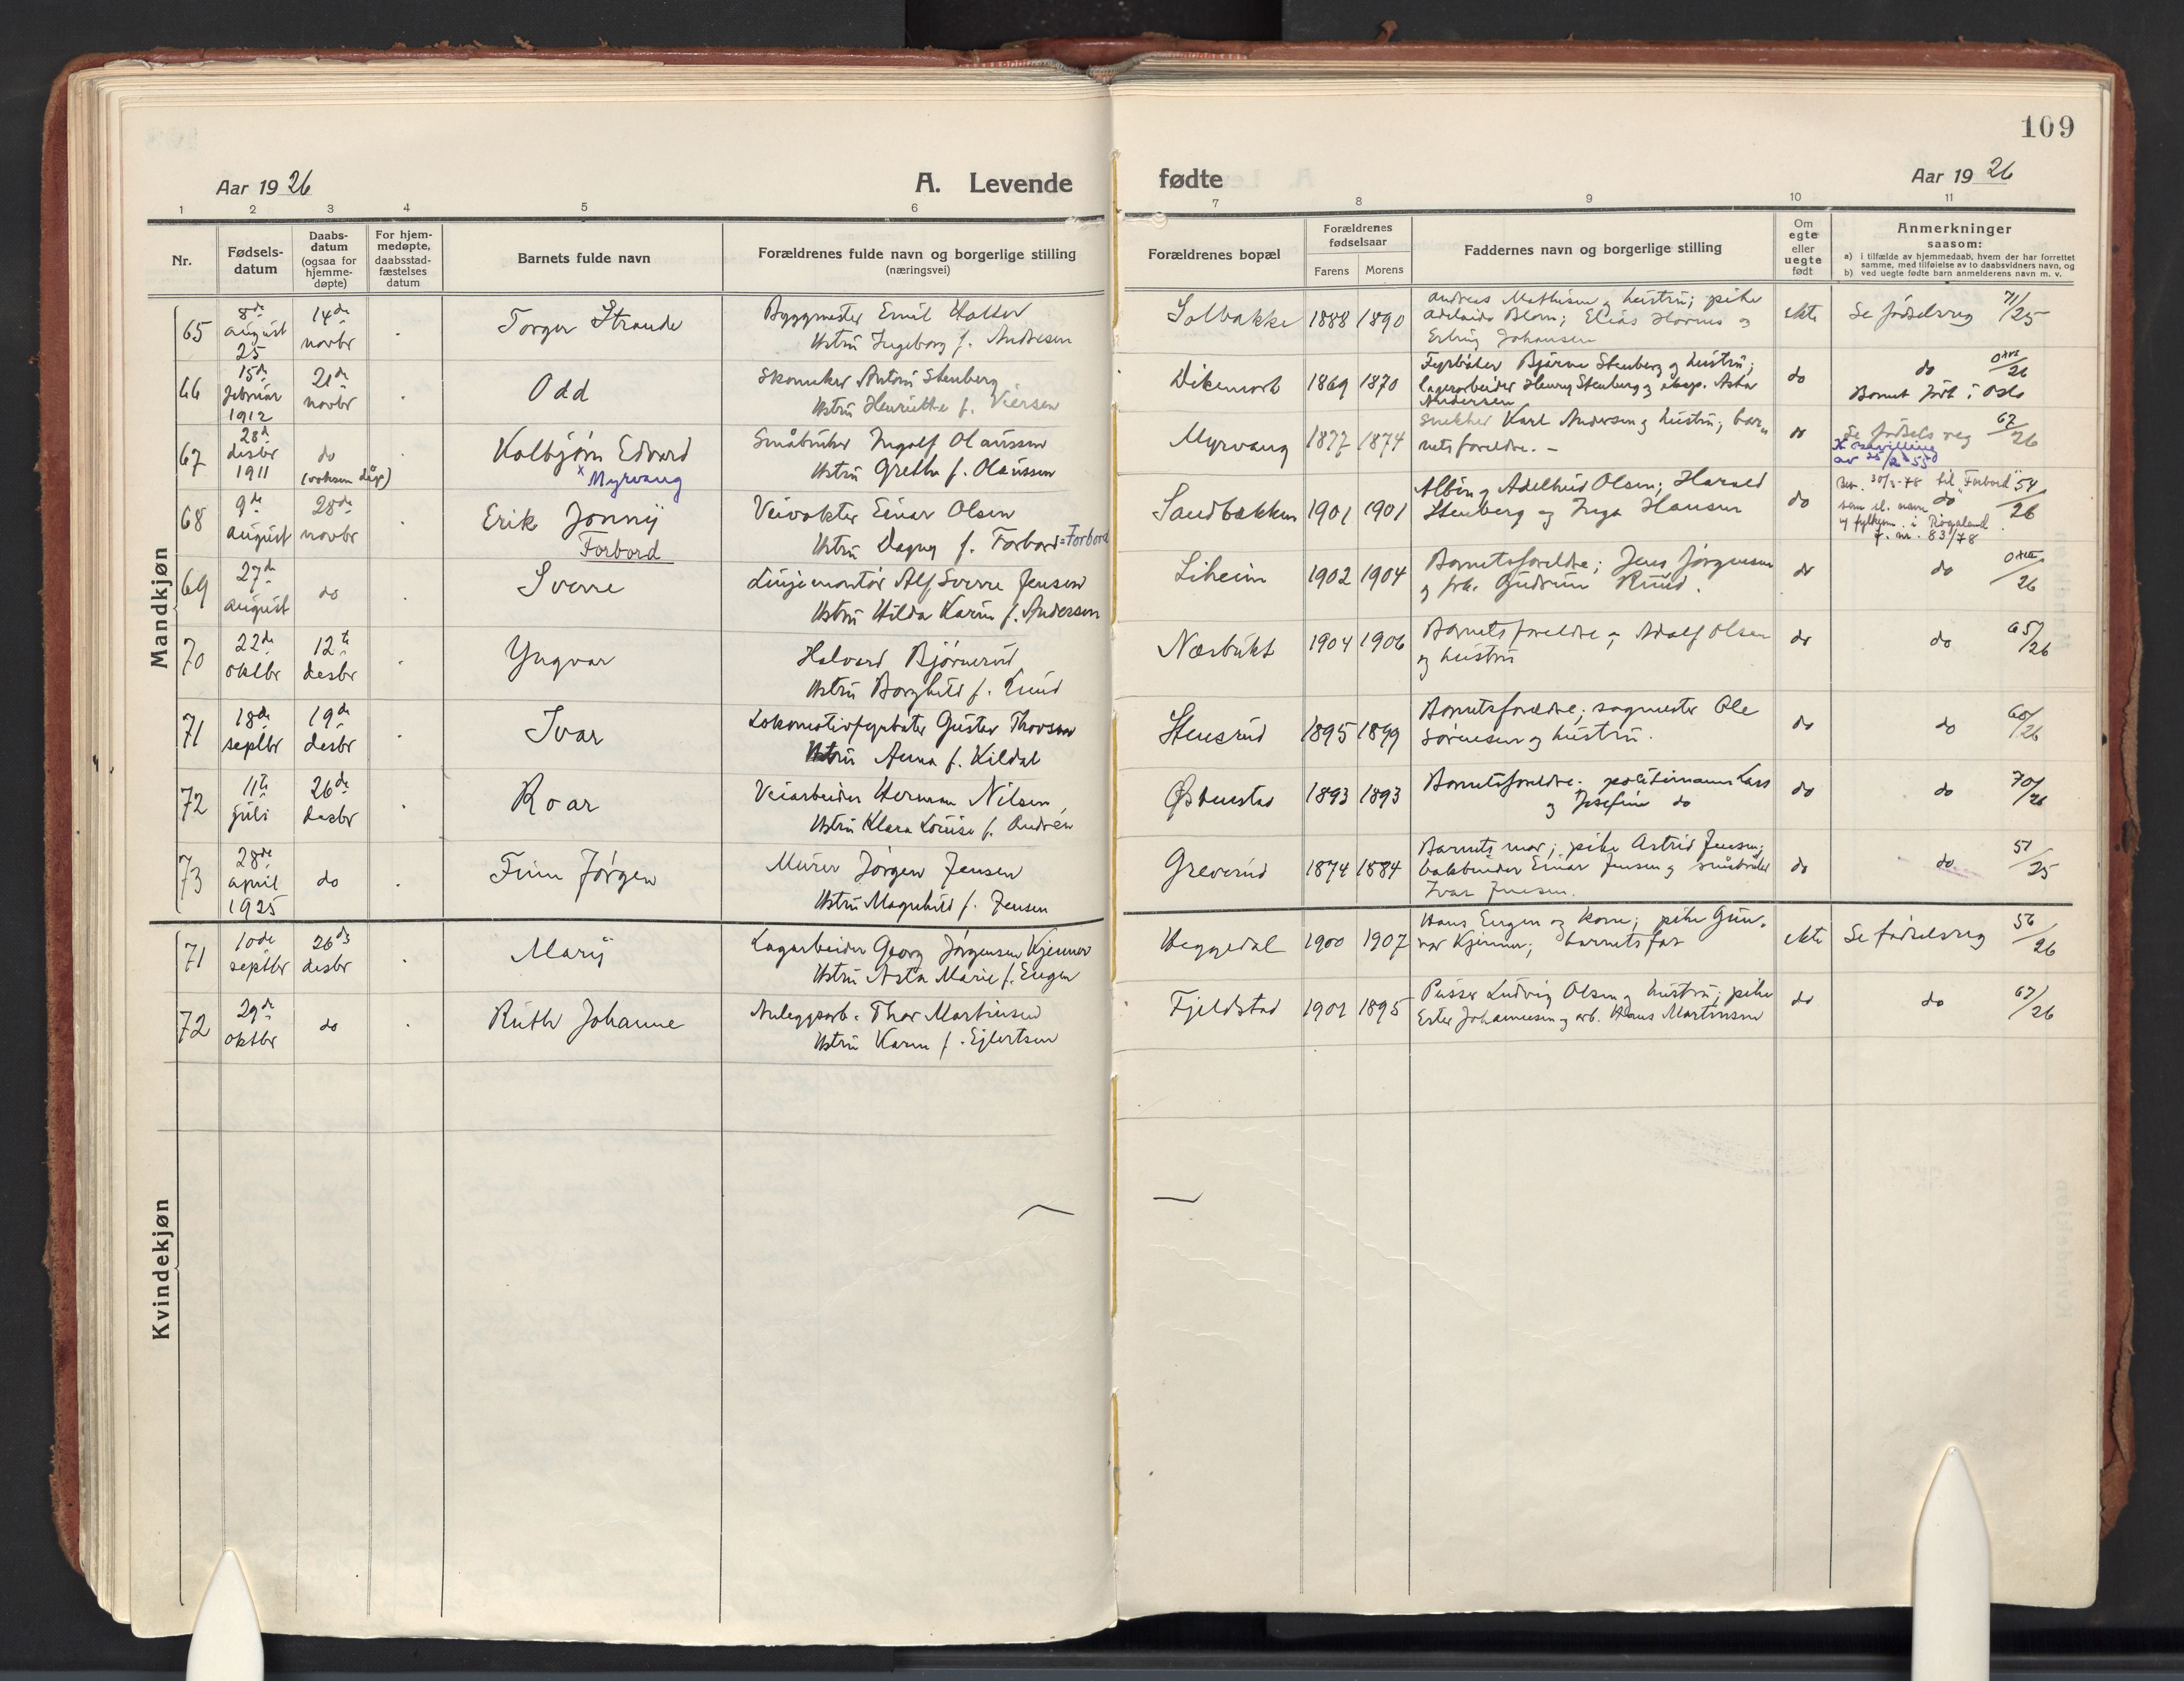 109
Aar 1926
A. Levende
fødte
Aar 1926
1 2 3 4 5 6 7 8 9 10 11
Nr.
Fødsels-
datum
Daabs-
datum
(ogsaa for
hjemme-
døpte)
For hjem-
medøpte,
daabsstad-
fæstelses
datum
Barnets fulde navn
Forældrenes fulde navn og borgerlige stilling
(næringsvei)
Forældrenes bopæl
Forældrenes
fødselsaar
Farens Morens
Faddernes navn og borgerlige stilling
Om
egte
eller
uegte
født
Anmerkninger
saasom:
a) i tilfælde av hjemmedaab, hvem der har forrettet
samme, med tilføielse av to daabsvidners navn, og
b) ved uegte fødte barn anmelderens navn m. v.
Mandkjøn
65
8de
august
25
14de
novbr
Torger Strande
Byggmester Emil Holter
Hstru Ingeborg f. Andresen
Solbakke
1888 1890
Andreas Mathisen og hustru; pike
Adelaide Blom; Elias Hornes og
Erling Johansen
ekte
Se fødselsreg 71/25
66
15de
februar
1912
21de
novbr
Odd
Skomaker Anton Stenberg
Hstru Henriette f. Viersen
Dikemark
1869 1870
Fyrbøter Bjarne Stenberg og hustru;
lagerarbeider Henry Stenberg og eksp. Asta
Andersen
do
do
26
Barnet født i Oslo
67
28de
desbr
1911
do
(voksen dåp)
Kolbjørn Edvard
x Myrvang
Småbruker Ingolf Olaussen
Hstru Grethe f. Olaussen
Myrvang
1877 1874
Snekker Karl Andersen og hustru; bar„
nets foreldre. –
do
Se fødselsreg 67/26
x bevilling
av 25/2-55
68
9de
august
28de
novbr
Erik Jonny
Forbord
Veivokter Einar Olsen
Hstru Dagny f. Forbord=Forbord
Sandbakken
1901 1901
Albin og Adelheid Olsen; Harald
Stenberg og Inga Hansen
do
Bev. 30/5-78 til "Forbord"
som sl. navn
av fylkesm. i Rogaland
j. nr. 83/78
do
54/26
69
27de
august
do
Sverre
Linjemontør Alf Sverre Jensen
Hstru Hilda Karin f. Andersen
Liheim
1902 1904
Barnets foreldre; Jens Jørgensen
og frk. Gudrun Ruud.
do
do
26
70
22de
oktbr
12te
desbr
Yngvar
Halvard Bjørnerud
Hstru Borghild f. Ruud
Næsbukt
1904 1906
Barnets foreldre og Adolf Olsen
og hustru
do
do
65/26
71
18de
septbr
19de
desbr
Ivar
Lokomotivfyrbøter Gustav Thorsen
Hstru Anna f. Kildal
Stensrud
1895 1899
Barnets foreldre; sagmester Ole
Sørensen og hustru.
do
do
60/26
72
11te
juli
26de
desbr
Roar
Veiarbeider Herman Nilsen,
Hstru Klara Louise f. Andresen
Østenstad
1893 1893
Barnets foreldre; politimann Lars
og Josefine do
do
do
70/26
73
28de
april
1925
do
Finn Jørgen
Murer Jørgen Jensen
Hstru Magnhild f. Jensen
Greverud
1874 1884
Barnets mor; pike Astrid Jensen;
Einar Jensen og småbruker
Ivar Jensen.
do
do
51/25
Kvindekjøn
71
10de
septbr
26de
desbr
Mary
Lagarbeider Georg Jørgensen Kjenner
Hstru Asta Marie f. Engen
Heggedal
1900 1907
Hans Engen og kone; pike Gun-
vor Kjenner; barnets far
ekte
Se fødselsreg 56/26
72
29de
oktbr
do
Ruth Johanne
Anleggsarb. Thor Martinsen
Hstru Karen f. Ejlertsen
Fjeldstad
1901 1895
Pusser Ludvig Olsen og hustru; pike
Ester Johannesen og arb. Hans Martinsen
do
do
67/26